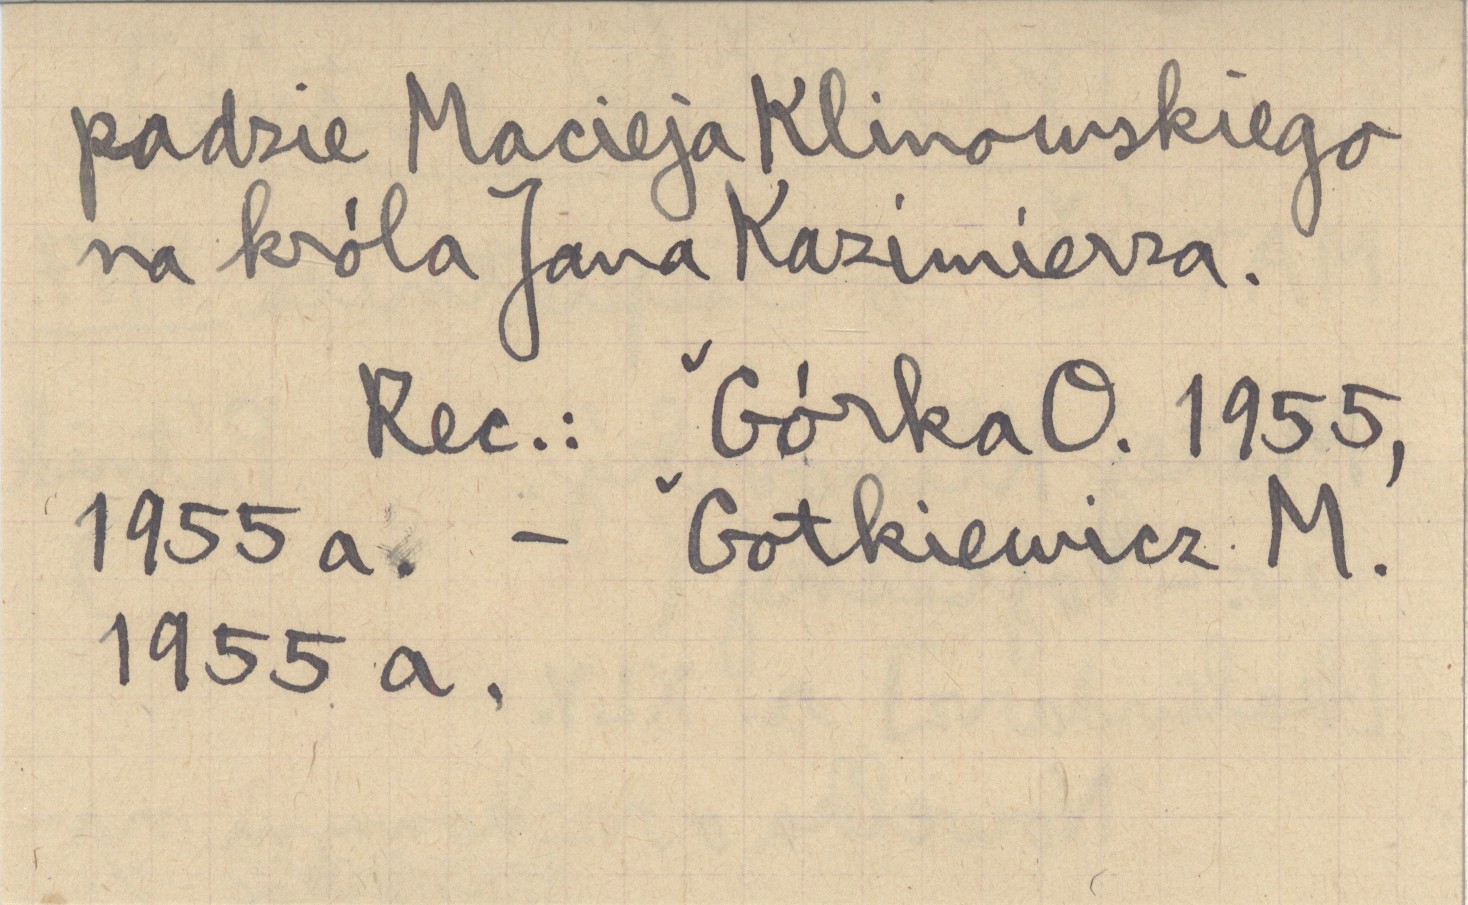 padzie Macieja Klinowskiego
na króla Jana Kazimierza.
Rec.: ˇGórka O. 1955,
1955 a. – ˇGotkiewicz M.
1955 a.